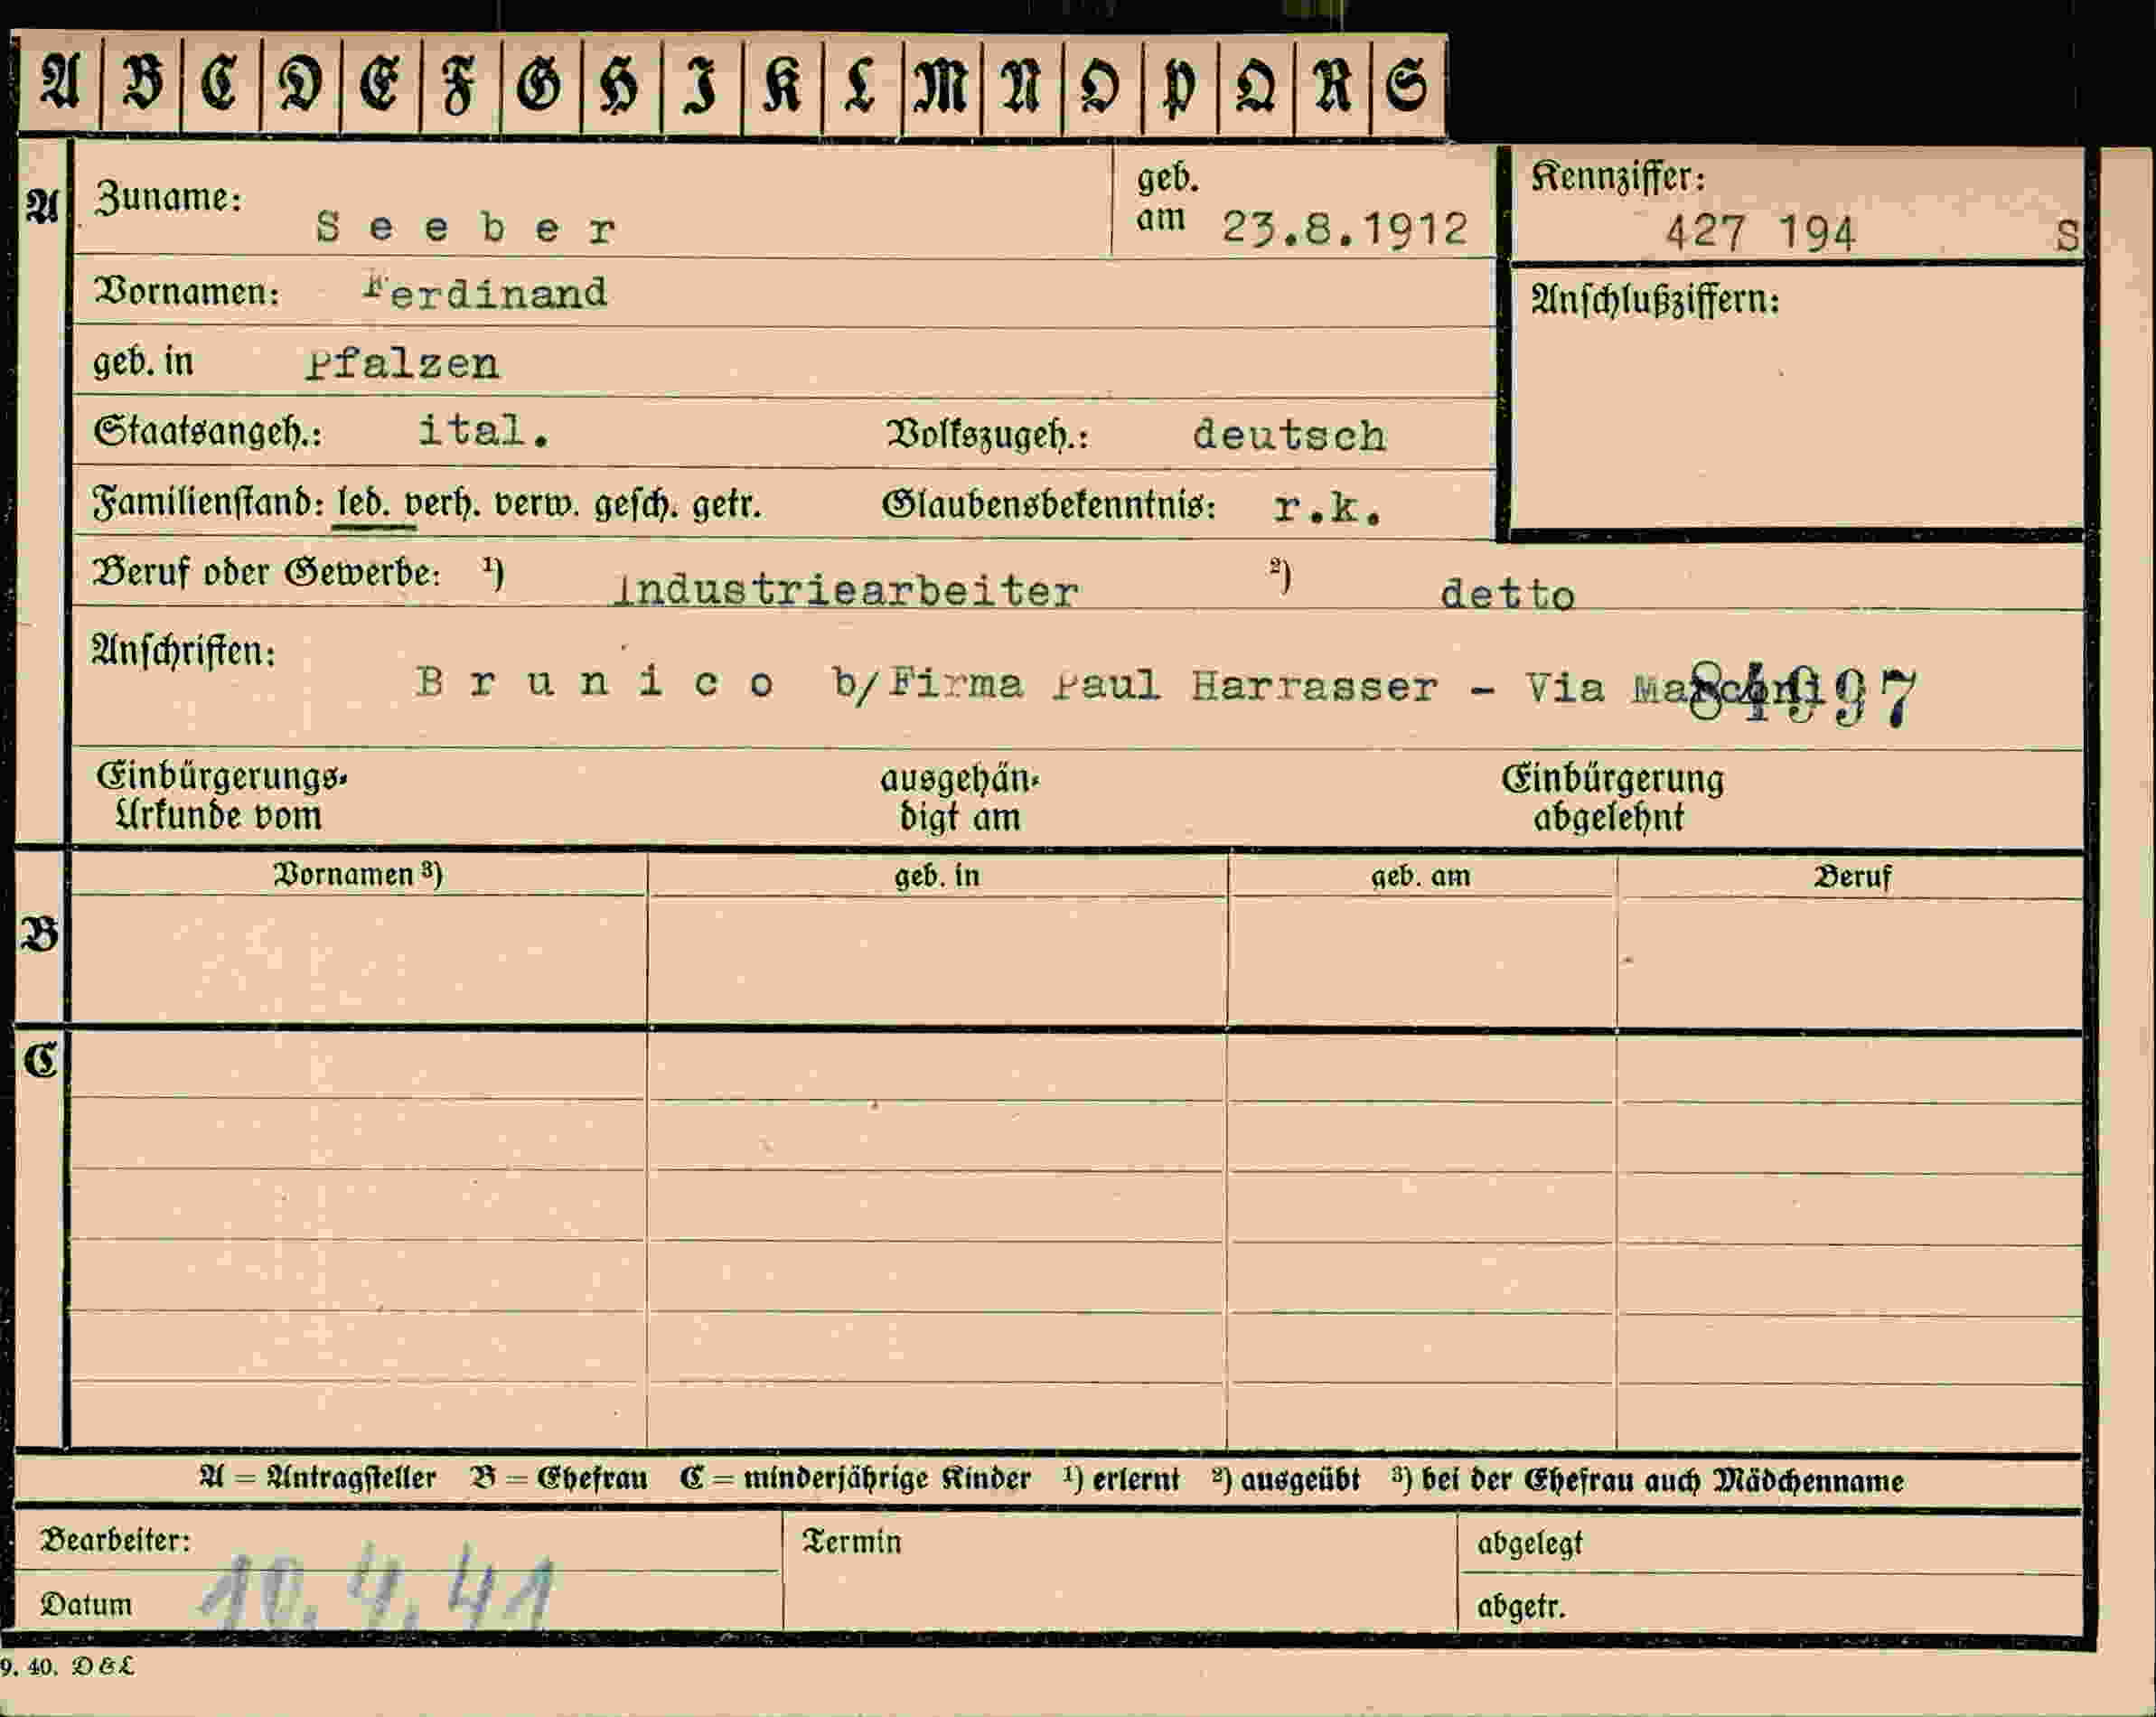 A B C D E F G H I K L M N O P Q R S
A Zuname: Seeber geb. am 23.8.1912 Kennziffer: 427 194 S
Vornamen: Ferdinand Anschlußziffern:
geb. in Pfalzen
Staatsangeh.: ital. Volkszugeh.: deutsch
Familienstand: led. verh. verw. gesch. getr. Glaubensbekenntnis: r.k.
Beruf oder Gewerbe: 1) Industriearbeiter 2) detto
Anschriften: Brunico b/Firma Paul Harrasser - Via Marconi 84997
Einbürgerungs- ausgehän- Einbürgerung
Urkunde vom digt am abgelehnt
Vornamen 3) geb. in geb. am Beruf
B
C
A = Antragsteller B = Ehefrau C = minderjährige Kinder 1) erlernt 2) ausgeübt 3) bei der Ehefrau auch Mädchenname
Bearbeiter: Termin abgelegt
Datum 10.4.41 abgetr.
9. 40. D & L